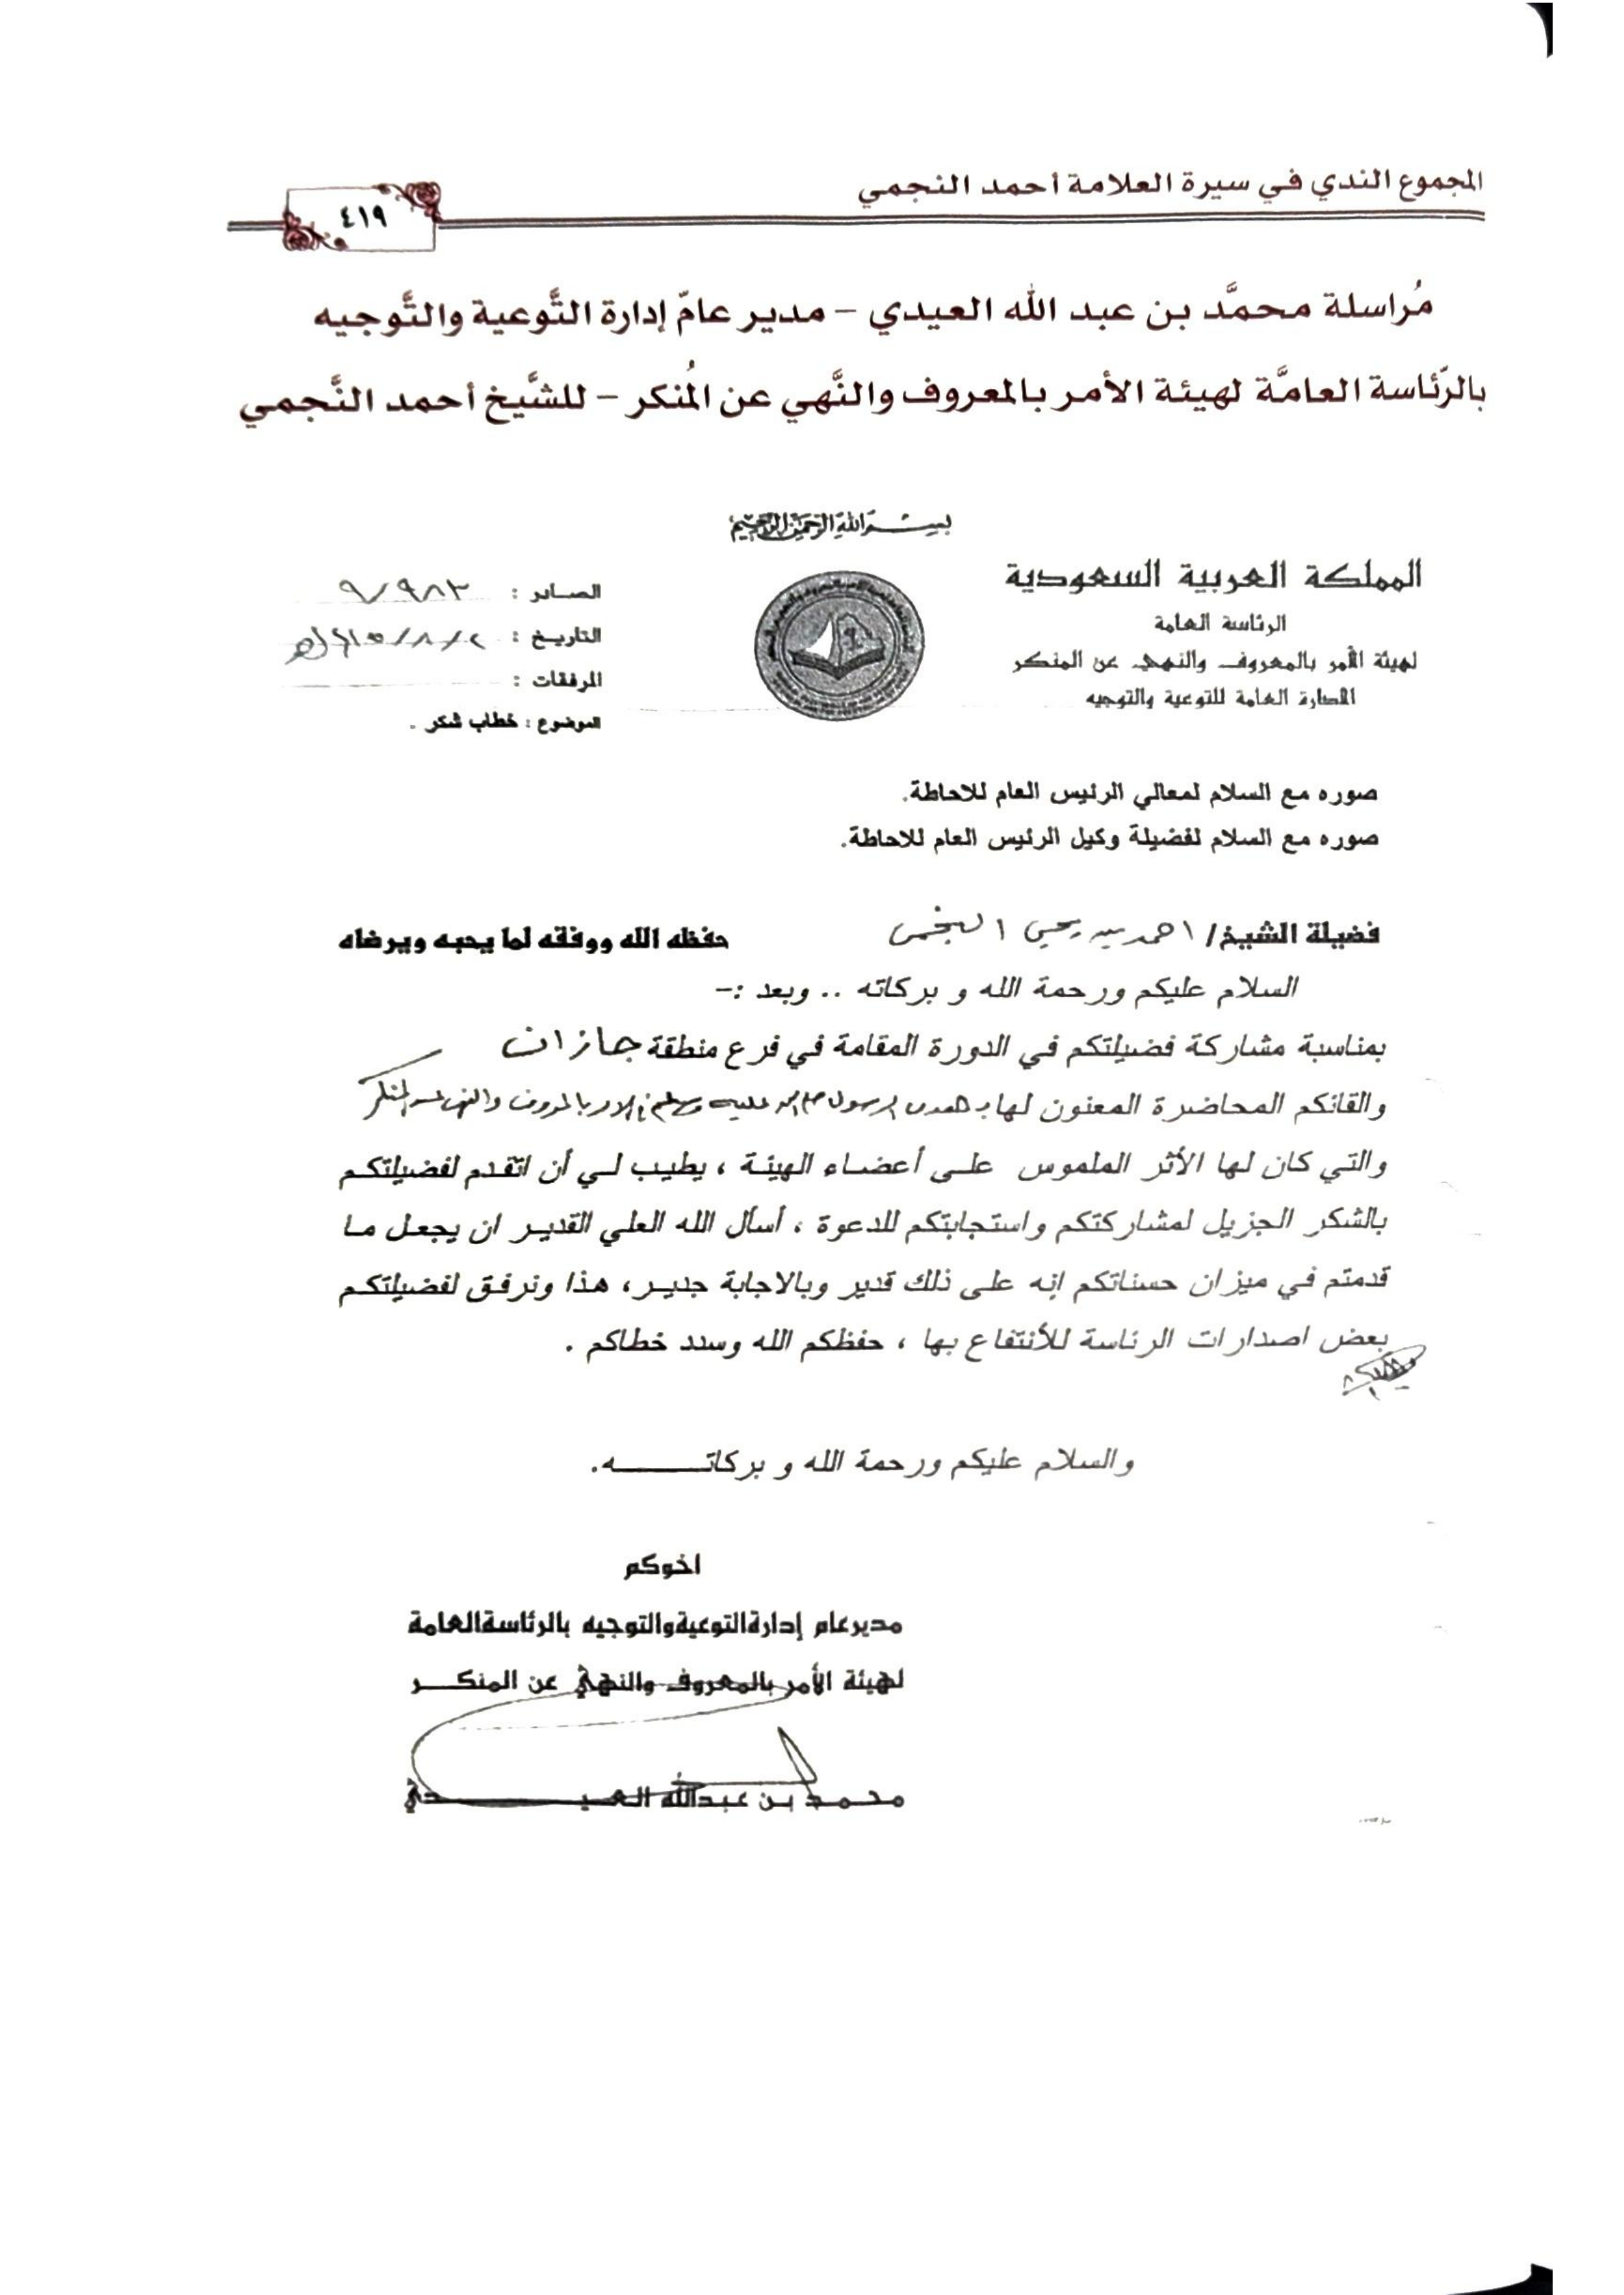 المجموع الندي في سيرة العلامة أحمد النجمي
٤١٩
مُراسلة محمَّد بن عبد الله العيدي - مدير عامّ إدارة التَّوعية والتَّوجيه
بالرّئاسة العامَّة لهيئة الأمر بالمعروف والنَّهي عن المُنكر - للشَّيخ أحمد النَّجمي
بسم الله الرحمن الرحيم
المملكة العربية السعودية
الرئاسة العامة
لهيئة الأمر بالمعروف والنهي عن المنكر
الادارة العامة للتوعية والتوجيه
الصادر : ٩/٩٨٣
التاريخ :
المرفقات :
الموضوع : خطاب شكر .
صوره مع السلام لمعالي الرئيس العام للاحاطة.
صوره مع السلام لفضيلة وكيل الرئيس العام للاحاطة.
فضيلة الشيخ/ احمد بن يحيى النجمي حفظه الله ووفقه لما يحبه ويرضاه
السلام عليكم ورحمة الله و بركاته .. وبعد :-
بمناسبة مشاركة فضيلتكم في الدورة المقامة في فرع منطقة جازان
والقائكم المحاضرة المعنون لها بـ الرسول صلى الله عليه وسلم في الامر بالمعروف والنهي عن المنكر
والتي كان لها الأثر الملموس على أعضاء الهيئة ، يطيب لي أن اتقدم لفضيلتكم
بالشكر الجزيل لمشاركتكم واستجابتكم للدعوة ، أسأل الله العلي القدير ان يجعل ما
قدمتم في ميزان حسناتكم إنه على ذلك قدير وبالاجابة جدير، هذا ونرفق لفضيلتكم
بعض اصدارات الرئاسة للأنتفاع بها ، حفظكم الله وسدد خطاكم .
والسلام عليكم ورحمة الله و بركاتـــــه.
اخوكم
مدير عام إدارة التوعية والتوجيه بالرئاسة العامة
لهيئة الأمر بالمعروف والنهي عن المنكــر
محمد بن عبدالله العيـــــدي